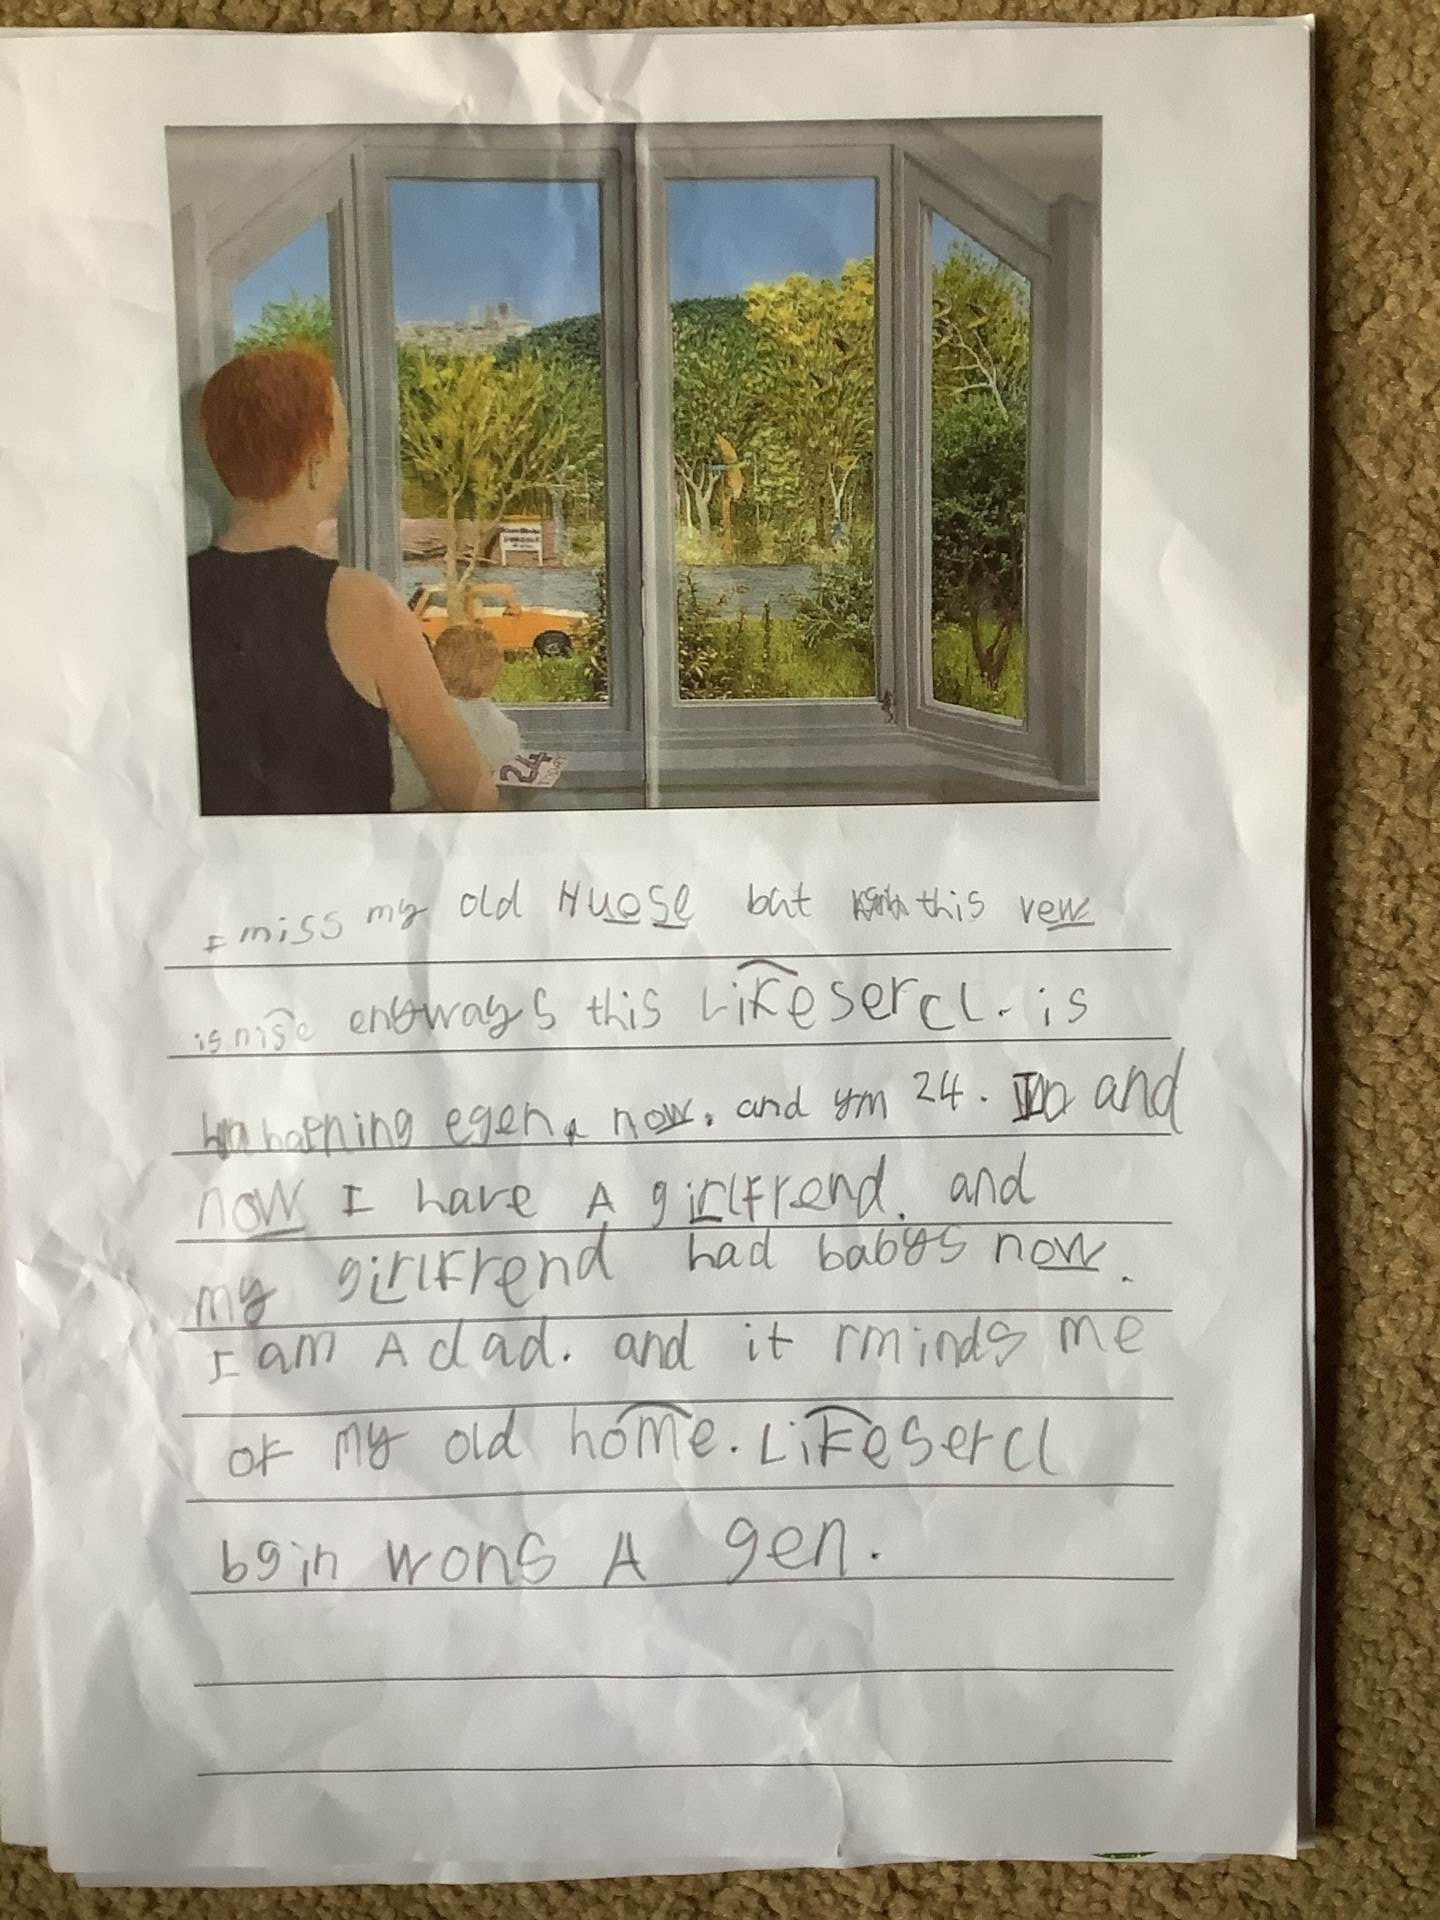 24
TODAY
I miss my old Huose but this vew
is nise enyways this Likesercl. is
hapening egen. now. and ym 24. and
now I have A girlfrend. and
my girlfrend had babys now.
I am A dad. and it rminds me
of my old home. Likesercl
bgin wons A gen.